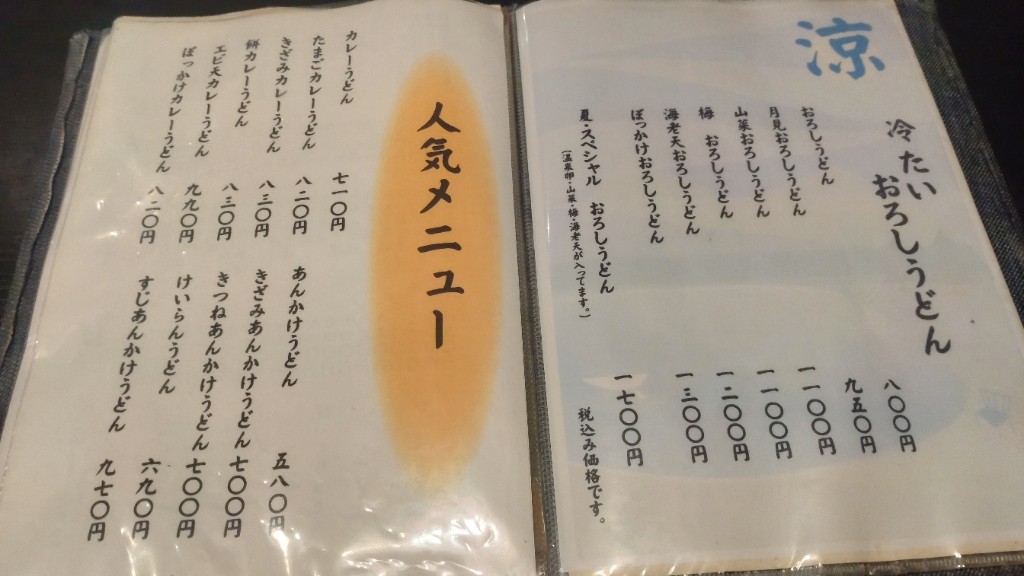 涼
冷たい
おろしうどん
おろしうどん 八〇〇円
月見おろしうどん 九五〇円
山菜おろしうどん 一一〇〇円
梅 おろしうどん 一一〇〇円
海老天おろしうどん 一二〇〇円
ぼっかけおろしうどん 一三〇〇円
夏・スペシャル おろしうどん 一七〇〇円
(温泉卵・山菜・梅・海老天が入ってます。)
税込み価格です。
人気メニュー
カレーうどん 七一〇円
たまごカレーうどん 八二〇円
きざみカレーうどん 八三〇円
餅カレーうどん 八三〇円
エビ天カレーうどん 九九〇円
ぼっかけカレーうどん 八二〇円
あんかけうどん 五八〇円
きざみあんかけうどん 七〇〇円
きつねあんかけうどん 七〇〇円
けいらんうどん 六九〇円
すじあんかけうどん 九七〇円